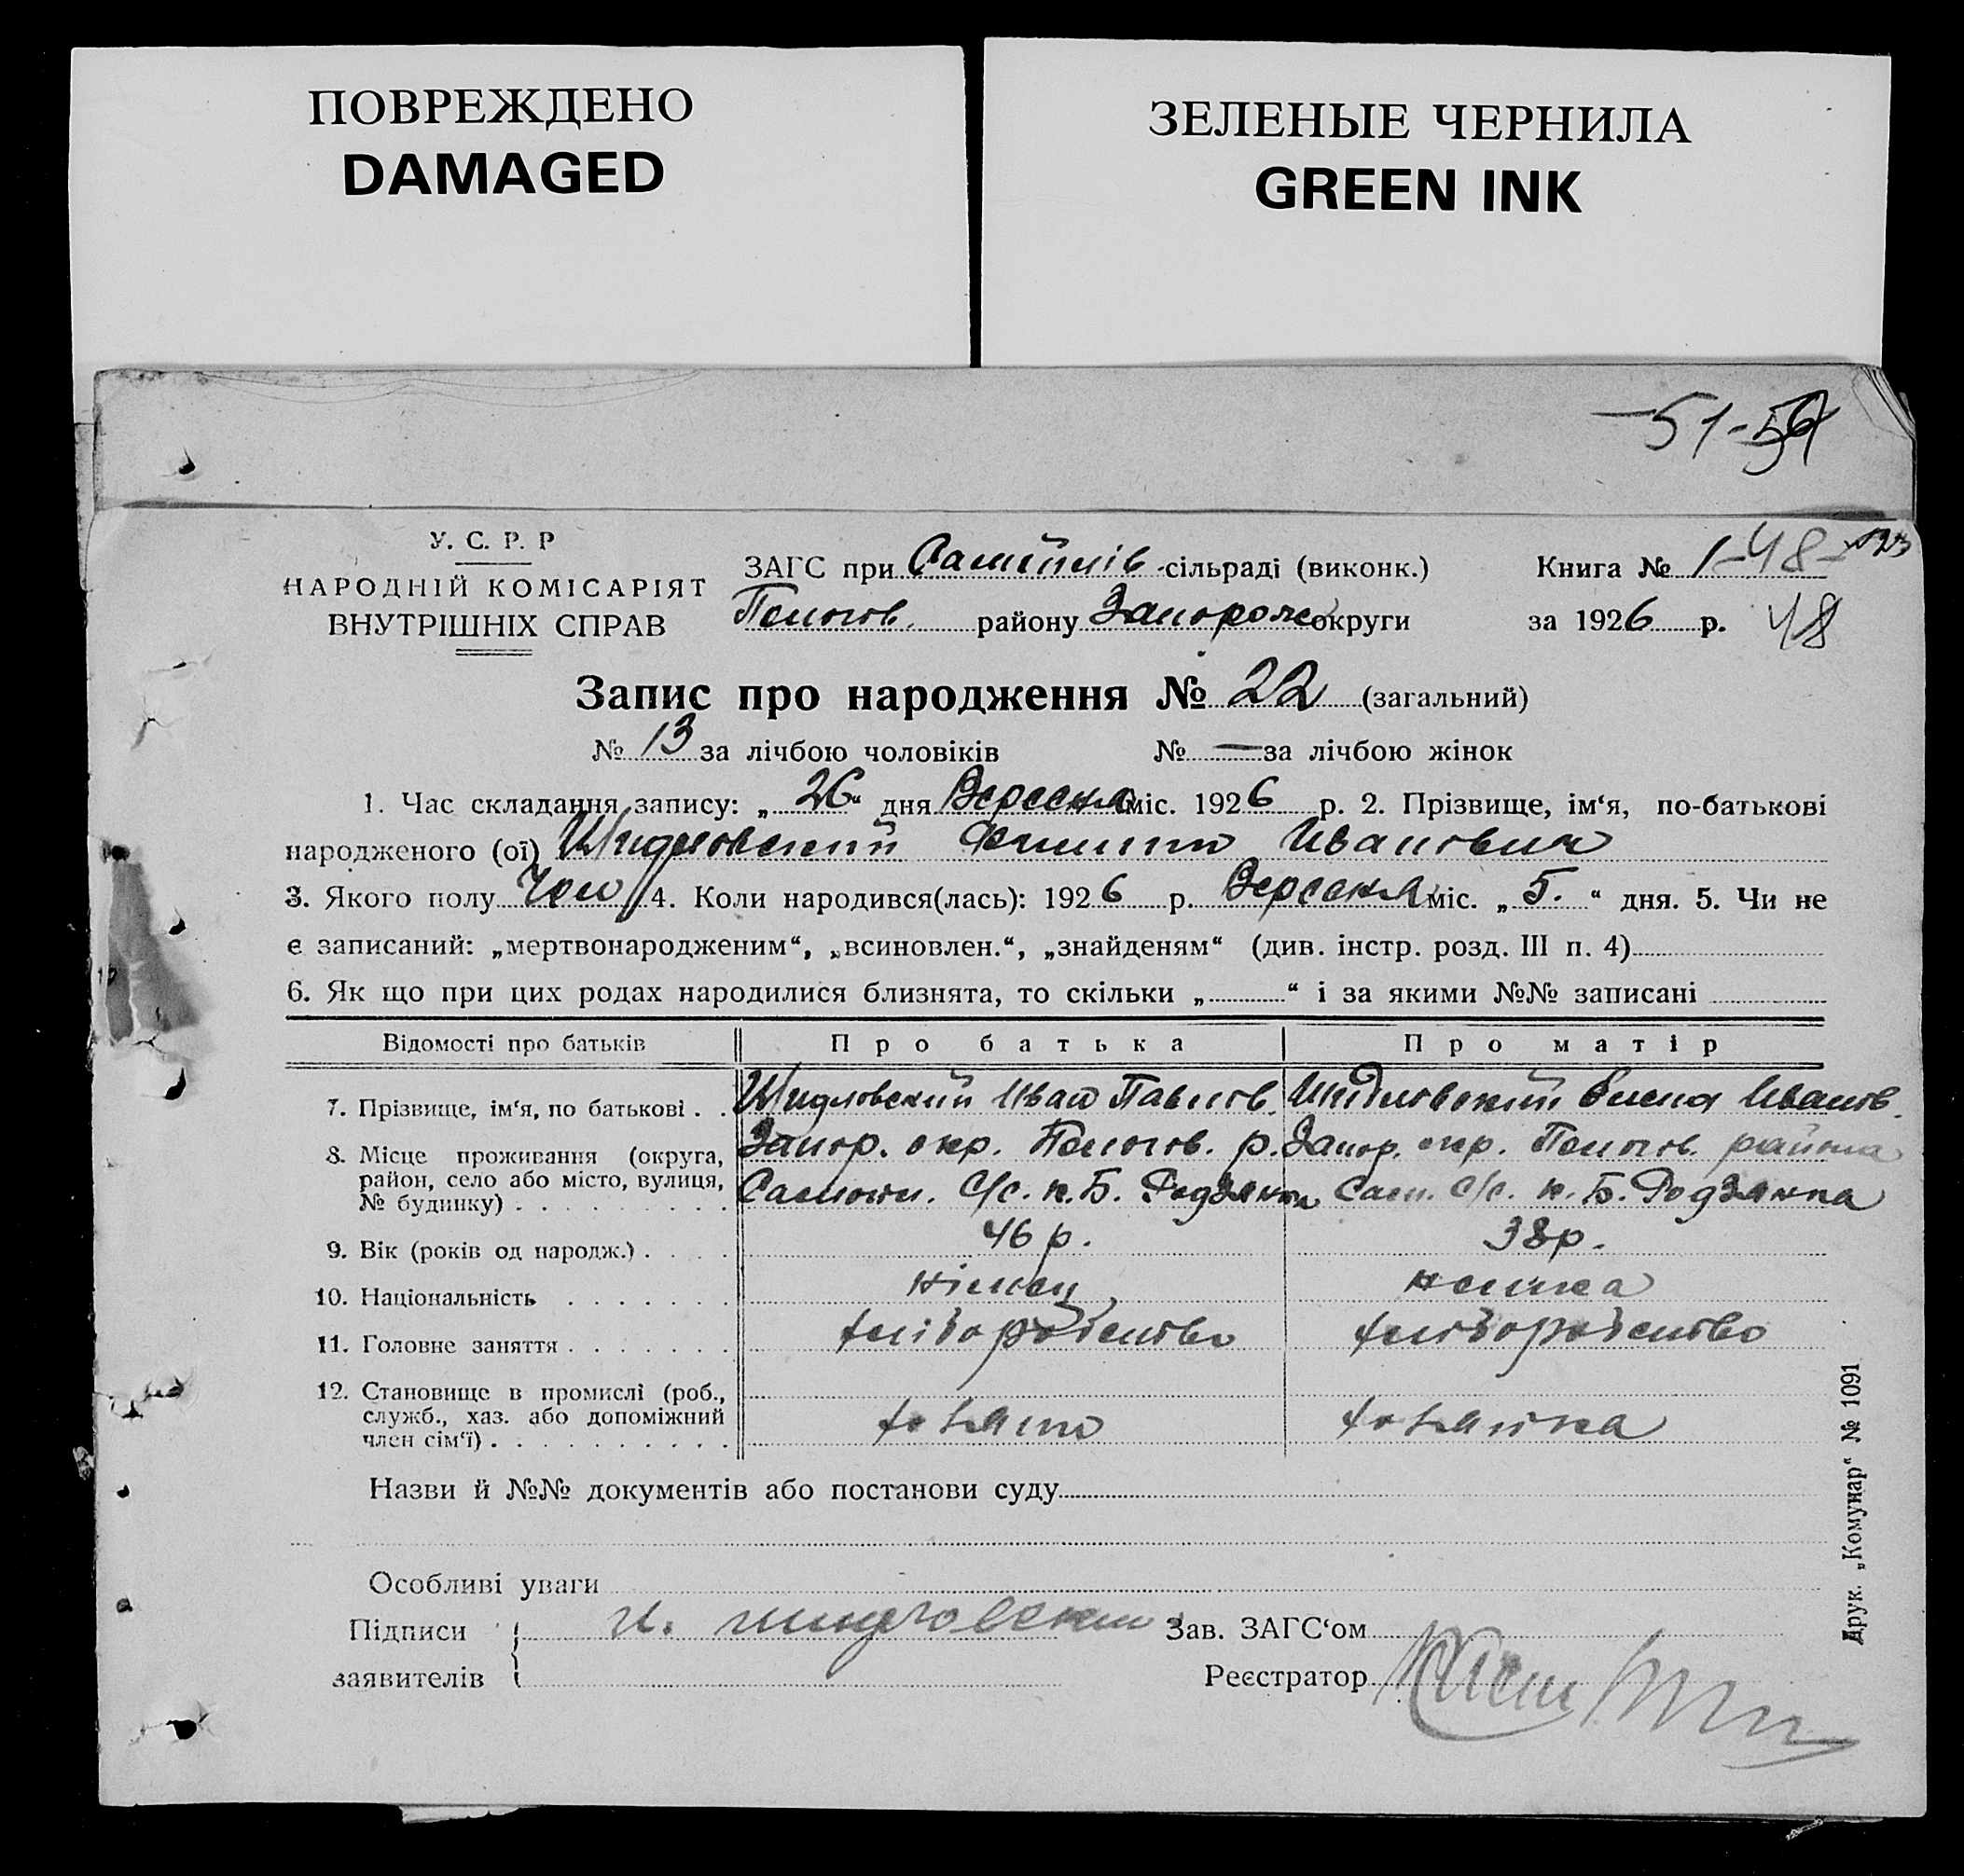 ПОВРЕЖДЕНО
DAMAGED
ЗЕЛЕНЫЕ ЧЕРНИЛА
GREEN INK
51-
У. С. Р. Р
НАРОДНІЙ КОМІСАРІЯТ
ВНУТРІШНІХ СПРАВ
ЗАГС при сільраді (виконк.)
Пологів. району Запорож округи
Книга № 1-48-
за 1926 р. 48
Запис про народження № 22 (загальний)
№ 13 за лічбою чоловіків № — за лічбою жінок
1. Час складання запису: „26“ дня Вересня міс. 1926 р. 2. Прізвище, ім‘я, по-батькові
народженого (ої) Шидловский Иванович
3. Якого полу Чол 4. Коли народився(лась): 1926 р. Вересня міс. „5.“ дня. 5. Чи не
є записаний: „мертвонародженим“, „всиновлен.“, „знайденям“ (див. інстр. розд. III п. 4)
6. Як що при цих родах народилися близнята, то скільки „ “ і за якими №№ записані
Відомості про батьків Про батька Про матір
7. Прізвище, ім‘я, по батькові . . Шидловский Иван Павлов. Шидловский Елена Иванов.
8. Місце проживання (округа, район, село або місто, вулиця, № будинку) . . . . . . . . .
Запор. окр. Пологів. р. Запор. окр. Пологів. района
С/с. к. Б. Родзянка Сам. С/с. к. Б. Родзянка
9. Вік (років од народж.) . . . . 46 р. 38 р.
10. Національність . . . . . . . німец немка
11. Головне заняття . . . . . . . хліборобство хліборобство
12. Становище в промислі (роб., служб., хаз. або допоміжний член сім‘ї) . . . . . . . . . .
хозяин хозяйка
Назви й №№ документів або постанови суду
Особливі уваги
Підписи заявителів И. шидловский
Зав. ЗАГС‘ом
Реєстратор
Друк. „Комунар“ № 1091